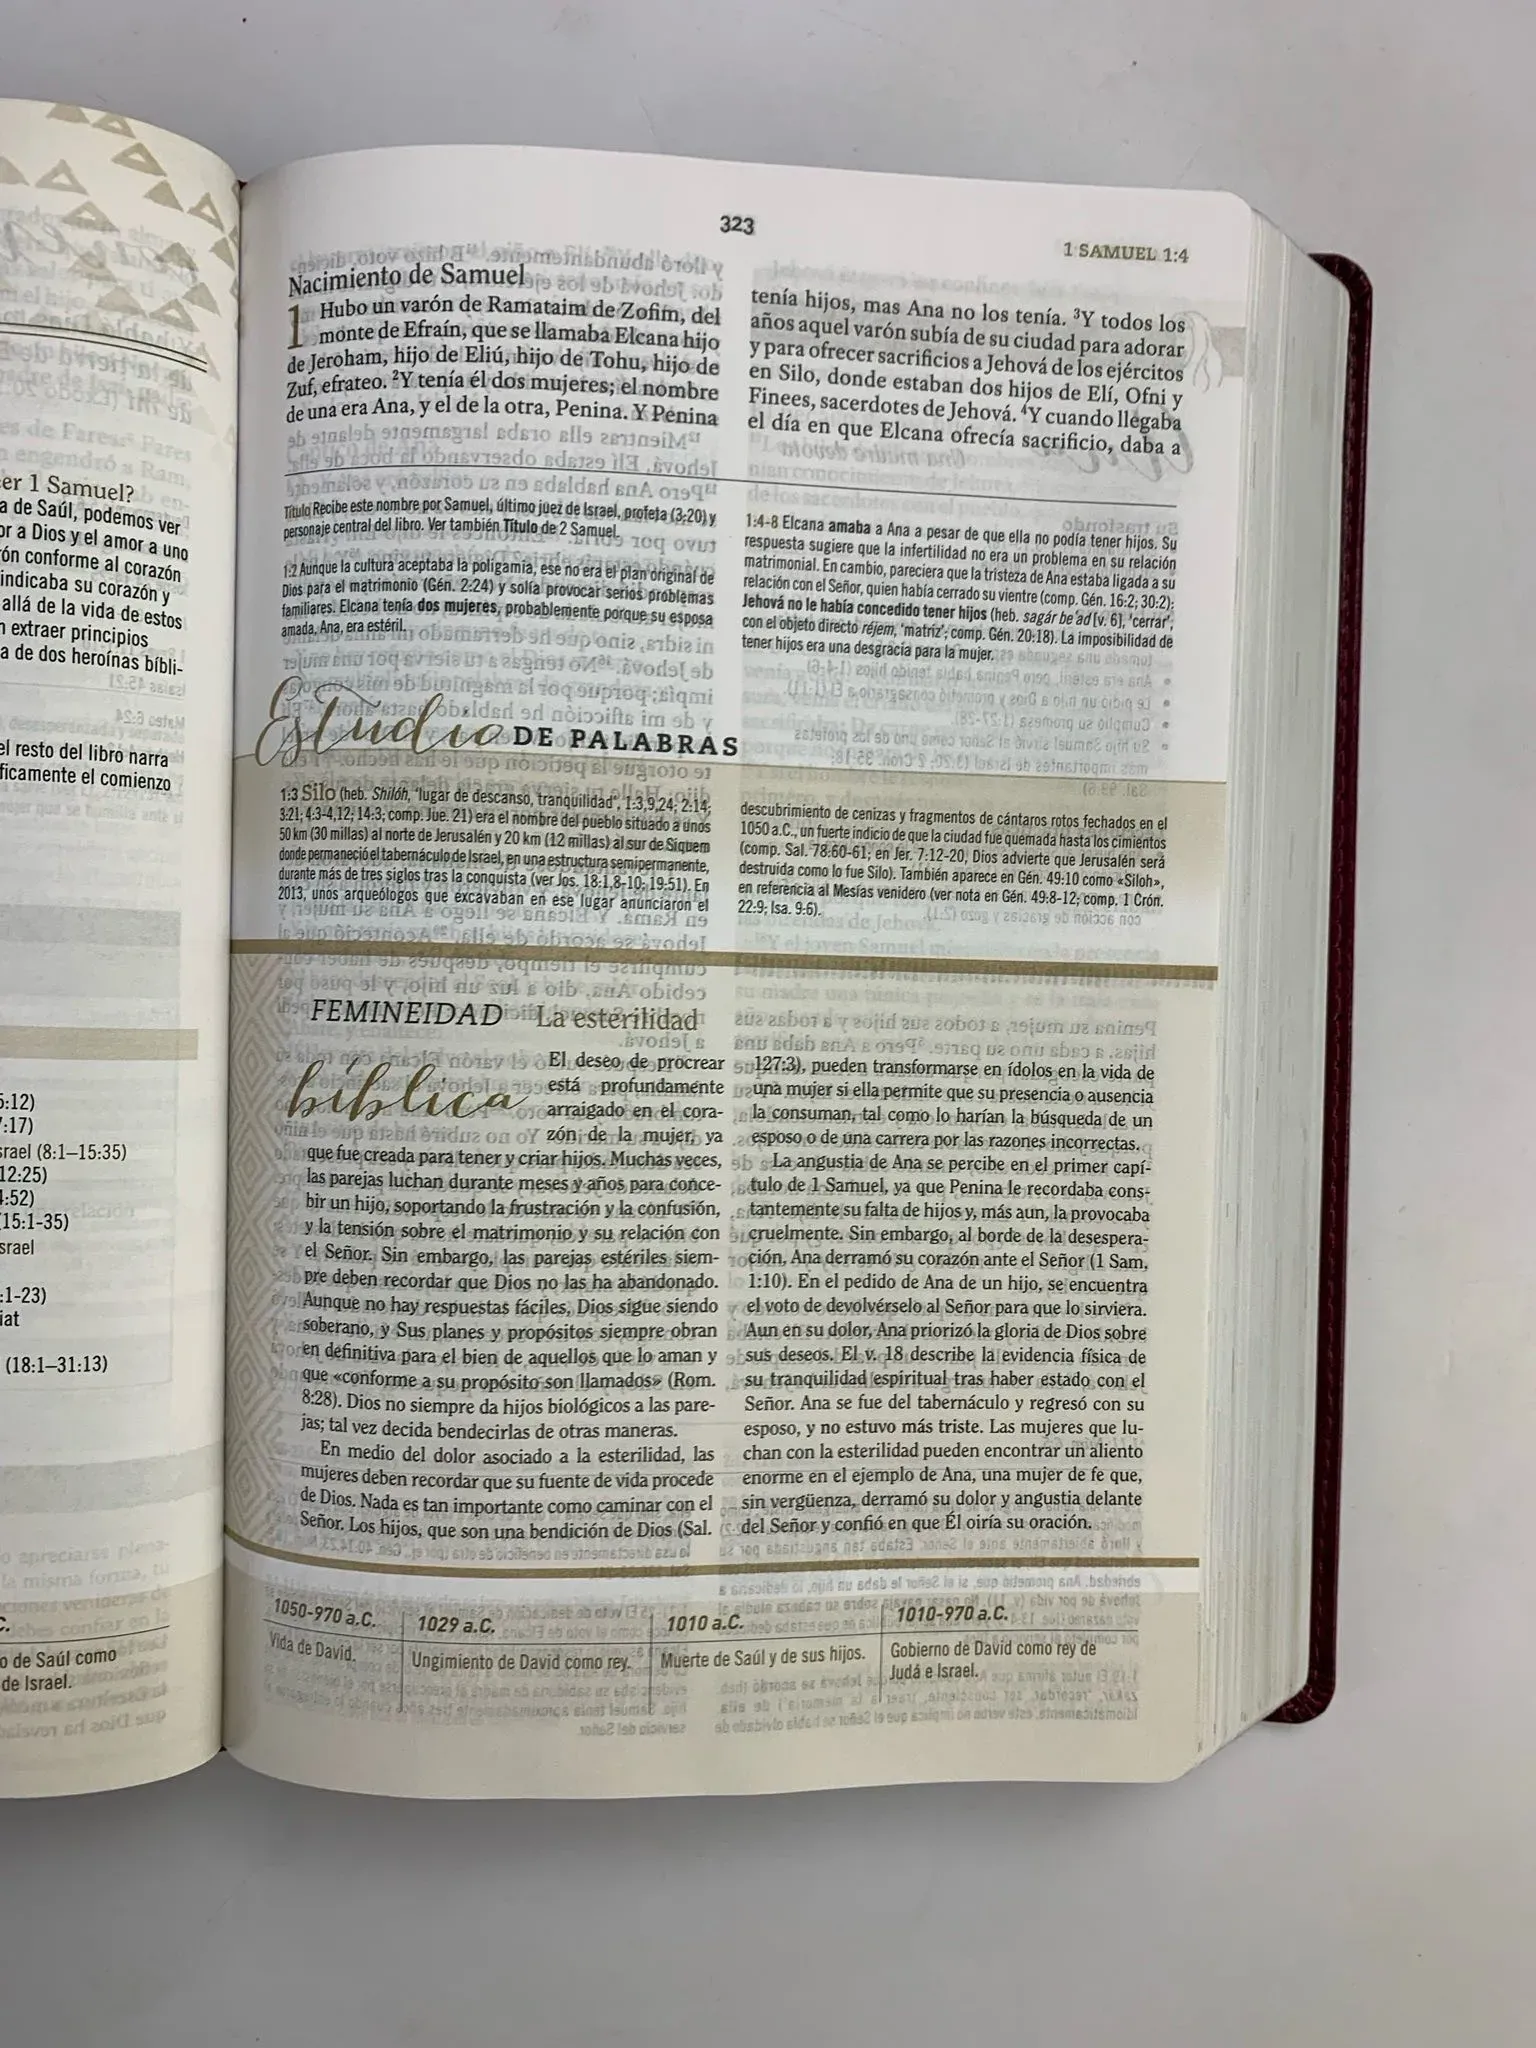 er 1 Samuel?
a de Saúl, podemos ver
or a Dios y el amor a uno
ón conforme al corazón
indicaba su corazón y
allá de la vida de estos
n extraer principios
a de dos heroínas bíbli-
el resto del libro narra
ficamente el comienzo
5:12)
7:17)
srael (8:1–15:35)
12:25)
4:52)
(15:1-35)
srael
:1-23)
iat
(18:1–31:13)
o de Saúl como
de Israel.
323
1 SAMUEL 1:4
Nacimiento de Samuel
1 Hubo un varón de Ramataim de Zofim, del
monte de Efraín, que se llamaba Elcana hijo
de Jeroham, hijo de Eliú, hijo de Tohu, hijo de
Zuf, efrateo. ²Y tenía él dos mujeres; el nombre
de una era Ana, y el de la otra, Penina. Y Penina
tenía hijos, mas Ana no los tenía. ³Y todos los
años aquel varón subía de su ciudad para adorar
y para ofrecer sacrificios a Jehová de los ejércitos
en Silo, donde estaban dos hijos de Elí, Ofni y
Finees, sacerdotes de Jehová. ⁴Y cuando llegaba
el día en que Elcana ofrecía sacrificio, daba a
Título Recibe este nombre por Samuel, último juez de Israel, profeta (3:20) y
personaje central del libro. Ver también Título de 2 Samuel.
1:2 Aunque la cultura aceptaba la poligamia, ese no era el plan original de
Dios para el matrimonio (Gén. 2:24) y solía provocar serios problemas
familiares. Elcana tenía dos mujeres, probablemente porque su esposa
amada, Ana, era estéril.
1:4-8 Elcana amaba a Ana a pesar de que ella no podía tener hijos. Su
respuesta sugiere que la infertilidad no era un problema en su relación
matrimonial. En cambio, pareciera que la tristeza de Ana estaba ligada a su
relación con el Señor, quien había cerrado su vientre (comp. Gén. 16:2; 30:2);
Jehová no le había concedido tener hijos (heb. sagár be'ad [v. 6], 'cerrar',
con el objeto directo réjem, 'matriz'; comp. Gén. 20:18). La imposibilidad de
tener hijos era una desgracia para la mujer.
Estudio DE PALABRAS
1:3 Silo (heb. Shilóh, 'lugar de descanso, tranquilidad', 1:3,9,24; 2:14;
3:21; 4:3-4,12; 14:3; comp. Jue. 21) era el nombre del pueblo situado a unos
50 km (30 millas) al norte de Jerusalén y 20 km (12 millas) al sur de Siquem
donde permaneció el tabernáculo de Israel, en una estructura semipermanente,
durante más de tres siglos tras la conquista (ver Jos. 18:1,8-10; 19:51). En
2013, unos arqueólogos que excavaban en ese lugar anunciaron el
descubrimiento de cenizas y fragmentos de cántaros rotos fechados en el
1050 a.C., un fuerte indicio de que la ciudad fue quemada hasta los cimientos
(comp. Sal. 78:60-61; en Jer. 7:12-20, Dios advierte que Jerusalén será
destruida como lo fue Silo). También aparece en Gén. 49:10 como «Siloh»,
en referencia al Mesías venidero (ver nota en Gén. 49:8-12; comp. 1 Crón.
22:9; Isa. 9:6).
FEMINEIDAD bíblica
La esterilidad
El deseo de procrear
está profundamente
arraigado en el cora-
zón de la mujer, ya
que fue creada para tener y criar hijos. Muchas veces,
las parejas luchan durante meses y años para conce-
bir un hijo, soportando la frustración y la confusión,
y la tensión sobre el matrimonio y su relación con
el Señor. Sin embargo, las parejas estériles siem-
pre deben recordar que Dios no las ha abandonado.
Aunque no hay respuestas fáciles, Dios sigue siendo
soberano, y Sus planes y propósitos siempre obran
en definitiva para el bien de aquellos que lo aman y
que «conforme a su propósito son llamados» (Rom.
8:28). Dios no siempre da hijos biológicos a las pare-
jas; tal vez decida bendecirlas de otras maneras.
En medio del dolor asociado a la esterilidad, las
mujeres deben recordar que su fuente de vida procede
de Dios. Nada es tan importante como caminar con el
Señor. Los hijos, que son una bendición de Dios (Sal.
127:3), pueden transformarse en ídolos en la vida de
una mujer si ella permite que su presencia o ausencia
la consuman, tal como lo harían la búsqueda de un
esposo o de una carrera por las razones incorrectas.
La angustia de Ana se percibe en el primer capí-
tulo de 1 Samuel, ya que Penina le recordaba cons-
tantemente su falta de hijos y, más aun, la provocaba
cruelmente. Sin embargo, al borde de la desespera-
ción, Ana derramó su corazón ante el Señor (1 Sam,
1:10). En el pedido de Ana de un hijo, se encuentra
el voto de devolvérselo al Señor para que lo sirviera.
Aun en su dolor, Ana priorizó la gloria de Dios sobre
sus deseos. El v. 18 describe la evidencia física de
su tranquilidad espiritual tras haber estado con el
Señor. Ana se fue del tabernáculo y regresó con su
esposo, y no estuvo más triste. Las mujeres que lu-
chan con la esterilidad pueden encontrar un aliento
enorme en el ejemplo de Ana, una mujer de fe que,
sin vergüenza, derramó su dolor y angustia delante
del Señor y confió en que Él oiría su oración.
1050-970 a.C.
Vida de David.
1029 a.C.
Ungimiento de David como rey.
1010 a.C.
Muerte de Saúl y de sus hijos.
1010-970 a.C.
Gobierno de David como rey de
Judá e Israel.